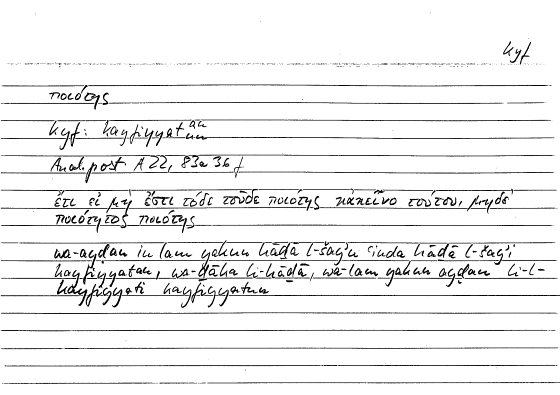 kyf
ποιότης
kyf: kayfiyyat an
un
Anal. post A 22, 83a 36 f
ἔτι εἰ μὴ ἔστι τόδε τοῦδε ποιότης κἀκεῖνο τούτου, μηδὲ
ποιότητος ποιότης
wa-ayḍan in lam yakun hāḏā l-šayʾu ʿinda hāḏā l-šayʾi
kayfiyyatan, wa-ḏāka li-hāḏā, wa-lam yakun ayḍan li-l-
kayfiyyati kayfiyyatun